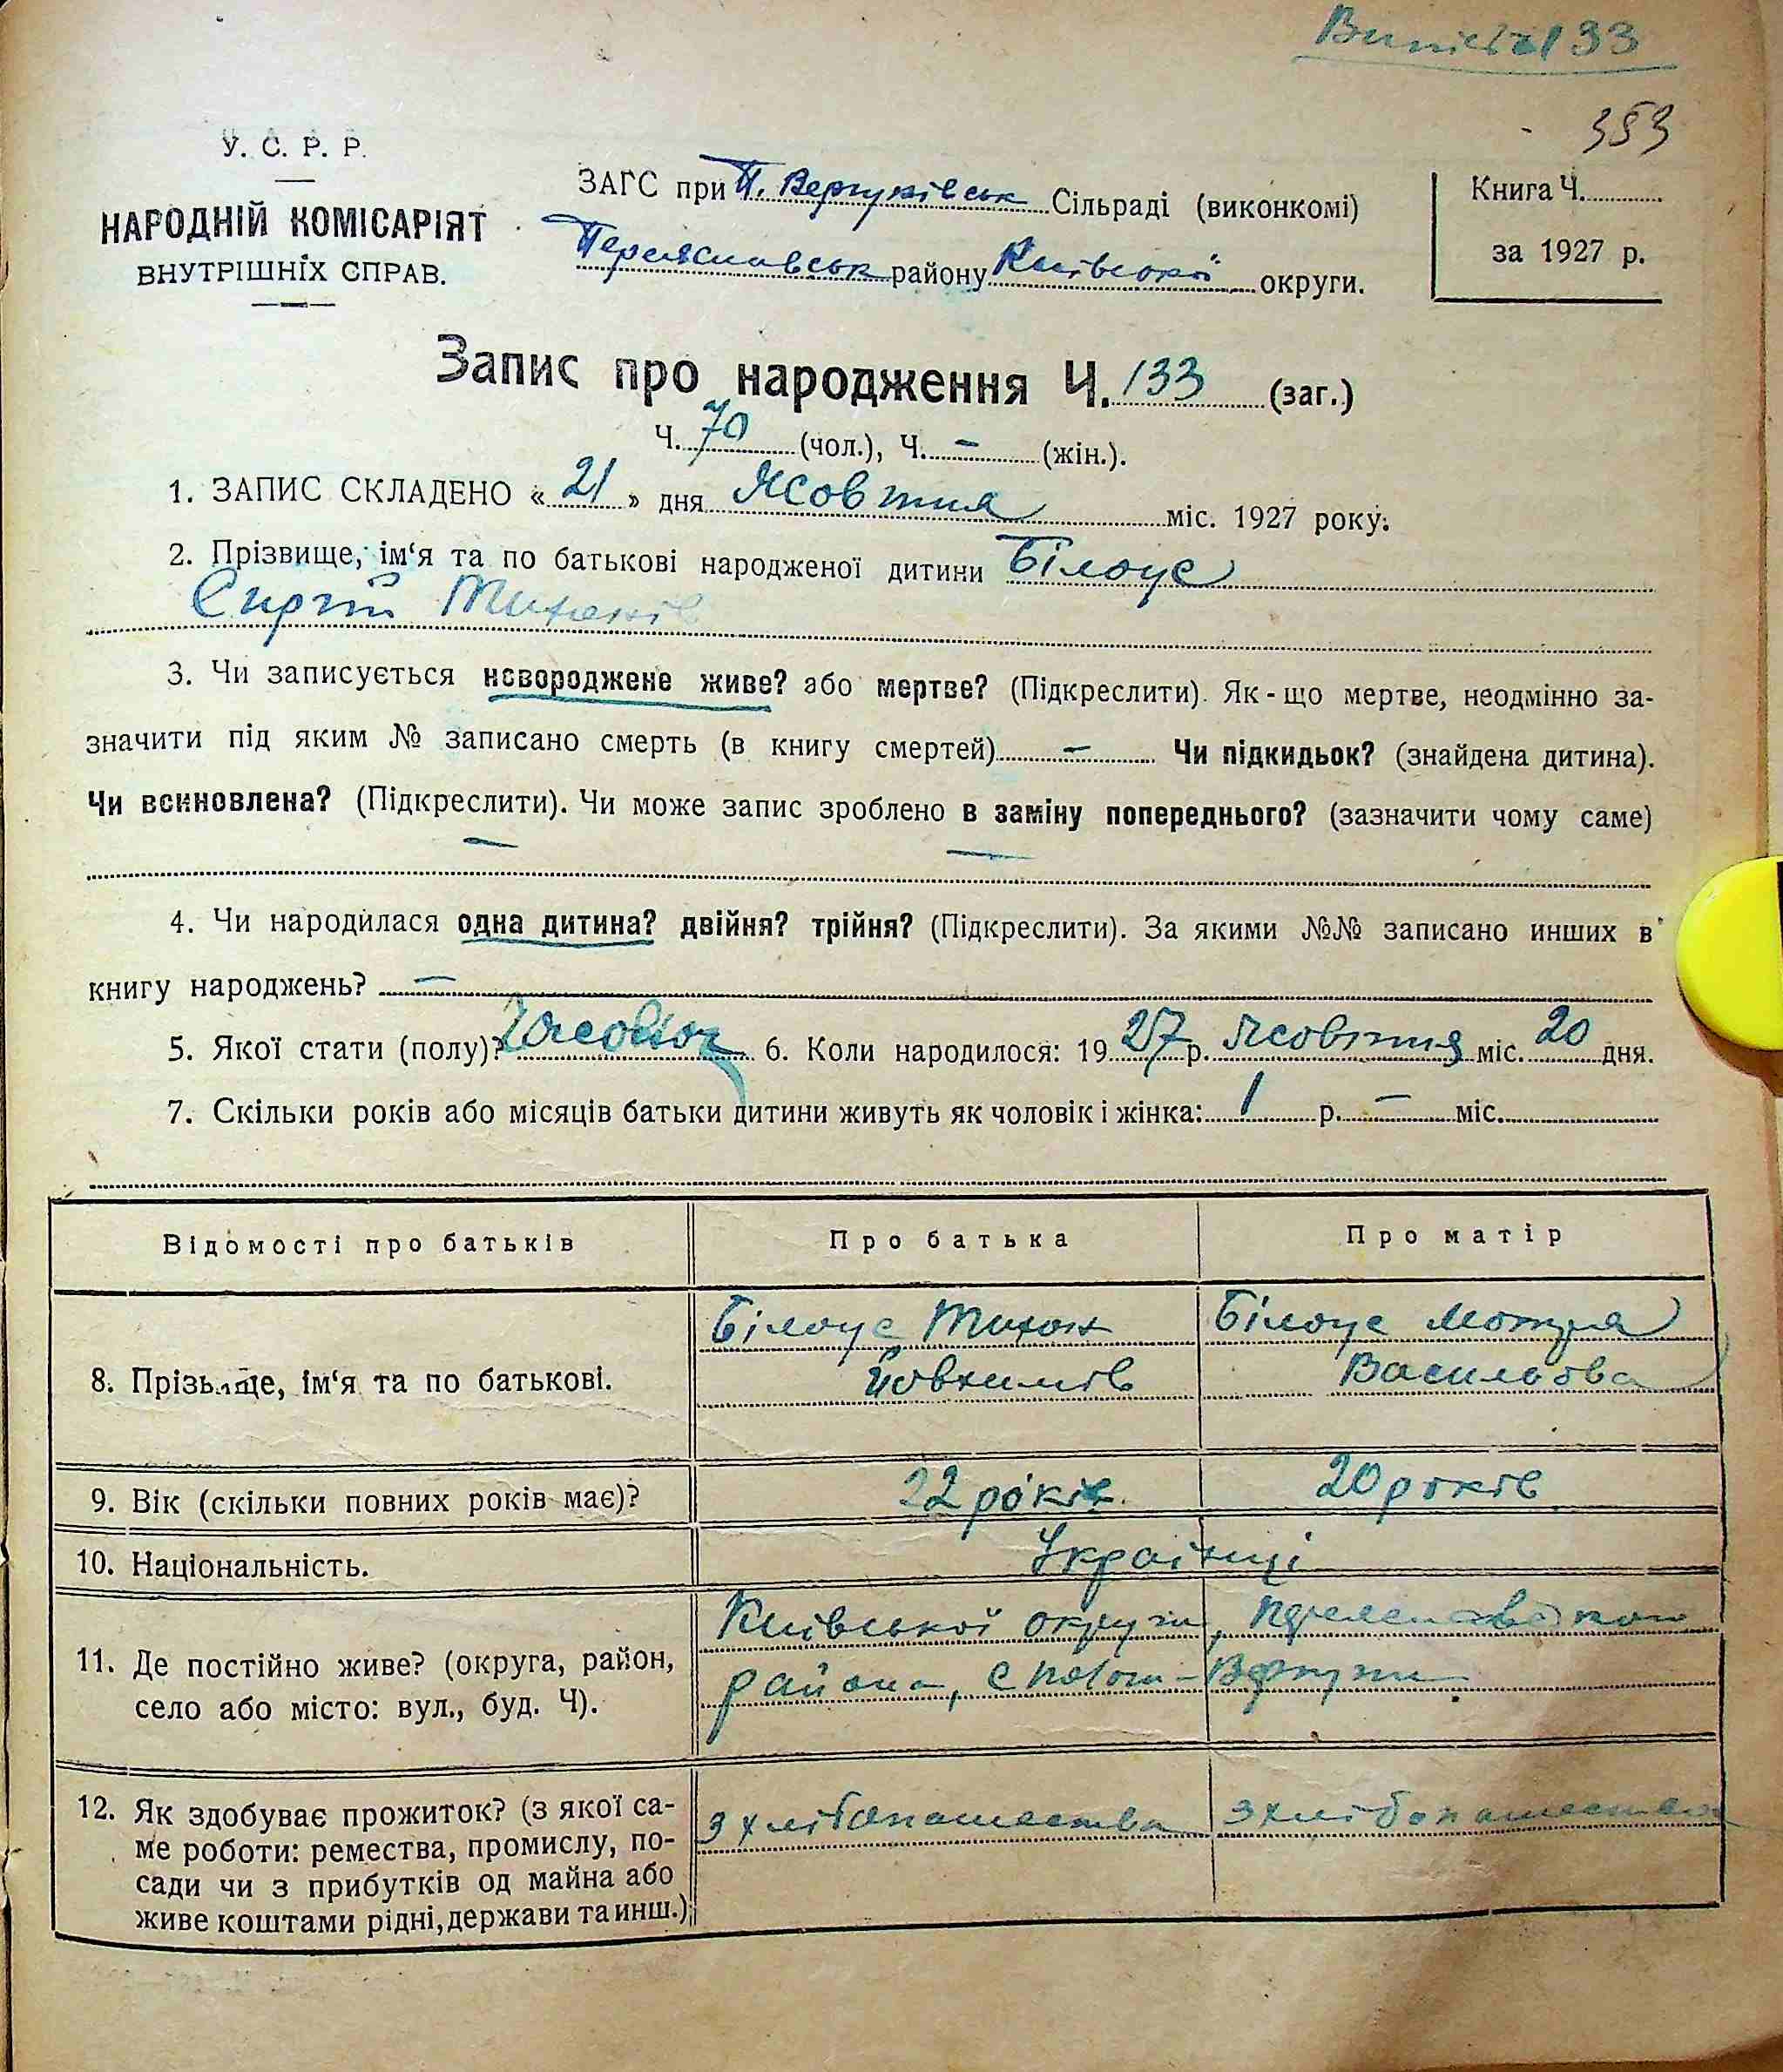 133
353
У. С. Р. Р.
НАРОДНІЙ КОМІСАРІЯТ
ВНУТРІШНІХ СПРАВ.
ЗАГС при П. Вергунівськ Сільраді (виконкомі)
Переяславськ району Київської округи.
Книга Ч.
за 1927 р.
Запис про народження Ч. 133 (заг.)
Ч. 70 (чол.), Ч. – (жін.).
1. ЗАПИС СКЛАДЕНО « 21 » дня Жовтня міс. 1927 року.
2. Прізвище, ім‘я та по батькові народженої дитини Білоус
Сиргій Тиханів
3. Чи записується новороджене живе? або мертве? (Підкреслити). Як - що мертве, неодмінно за-
значити під яким № записано смерть (в книгу смертей) – Чи підкидьок? (знайдена дитина).
Чи всиновлена? (Підкреслити). Чи може запис зроблено в заміну попереднього? (зазначити чому саме)
– –
4. Чи народилася одна дитина? двійня? трійня? (Підкреслити). За якими №№ записано инших в
книгу народжень? –
5. Якої стати (полу)? 6. Коли народилося: 19 27 р. Жовтня міс. 20 дня.
7. Скільки років або місяців батьки дитини живуть як чоловік і жінка: 1 р. – міс.
Відомості про батьків Про батька Про матір
8. Прізвище, ім‘я та по батькові.
Білоус Тихон Білоус Мотря
Йовхимів Васильова
9. Вік (скільки повних років має)? 22 років. 20 років
10. Національність. Українці
11. Де постійно живе? (округа, район,
село або місто: вул., буд. Ч).
Київської округи,
района, с
12. Як здобуває прожиток? (з якої са-
ме роботи: ремества, промислу, по-
сади чи з прибутків од майна або
живе коштами рідні, держави та инш.)
з хлібопашества з хлібопашества